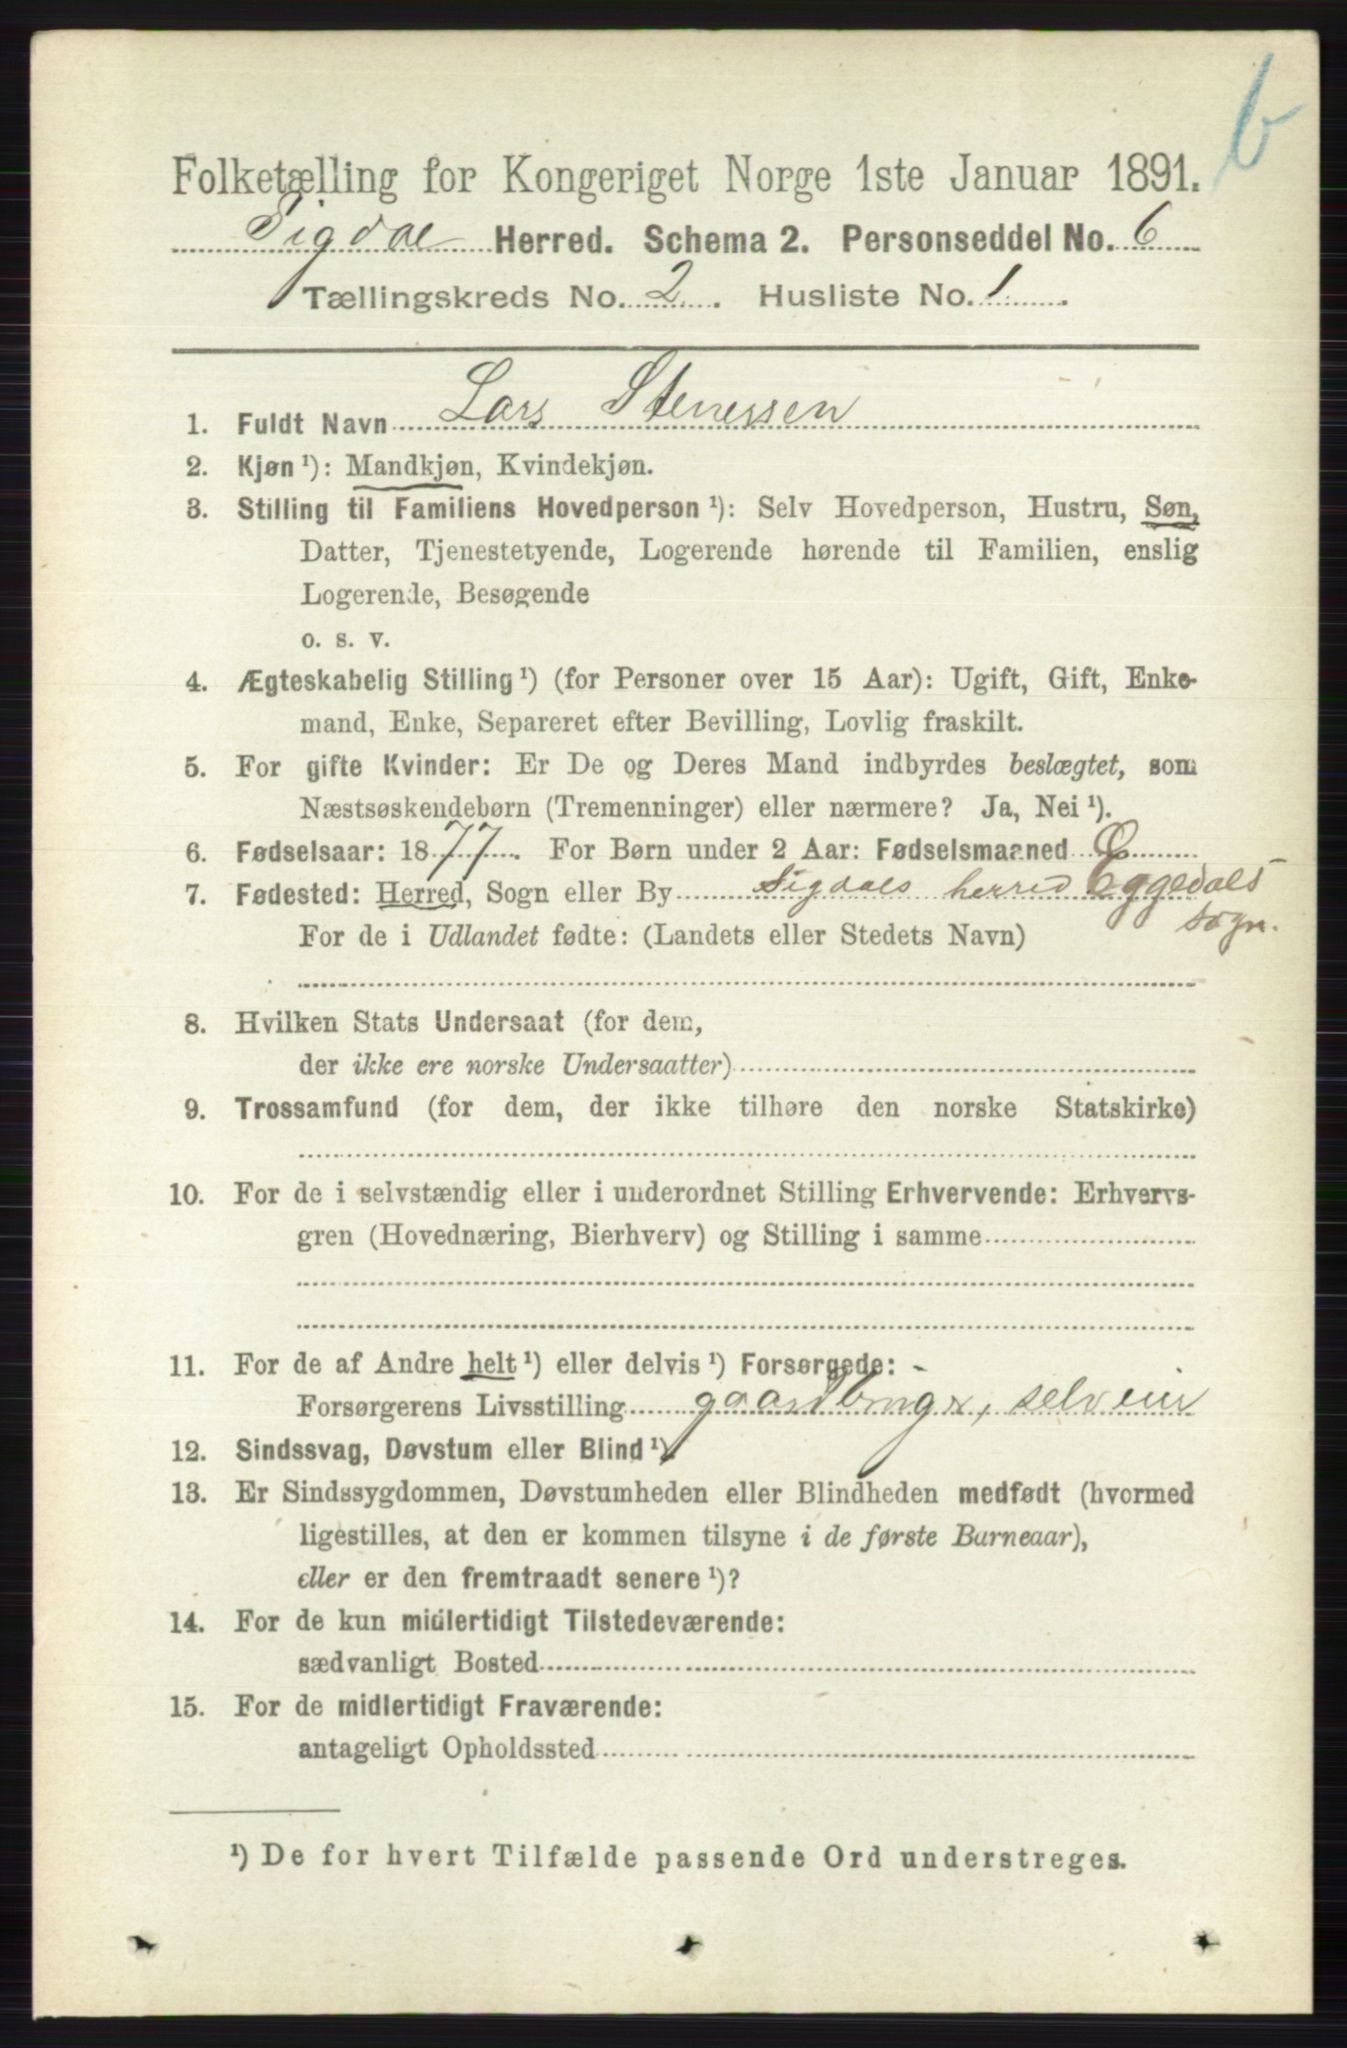 b
Folketælling for Kongeriget Norge 1ste Januar 1891.
Sigdal Herred. Schema 2. Personseddel No. 6
Tællingskreds No. 2. Husliste No. 1.
1. Fuldt Navn Lars Stenessen
2. Kjøn ¹): Mandkjøn, Kvindekjøn.
3. Stilling til Familiens Hovedperson ¹): Selv Hovedperson, Hustru, Søn,
Datter, Tjenestetyende, Logerende hørende til Familien, enslig
Logerende, Besøgende
o. s. v.
4. Ægteskabelig Stilling ¹) (for Personer over 15 Aar): Ugift, Gift, Enke-
mand, Enke, Separeret efter Bevilling, Lovlig fraskilt.
5. For gifte Kvinder: Er De og Deres Mand indbyrdes beslægtet, som
Næstsøskendebørn (Tremenninger) eller nærmere? Ja, Nei ¹).
6. Fødselsaar: 1877. For Børn under 2 Aar: Fødselsmaaned
7. Fødested: Herred, Sogn eller By Sigdals herred Eggedals
sogn.
For de i Udlandet fødte: (Landets eller Stedets Navn)
8. Hvilken Stats Undersaat (for dem,
der ikke ere norske Undersaatter)
9. Trossamfund (for dem, der ikke tilhøre den norske Statskirke)
10. For de i selvstændig eller i underordnet Stilling Erhvervende: Erhvervs-
gren (Hovednæring, Bierhverv) og Stilling i samme
11. For de af Andre helt ¹) eller delvis ¹) Forsørgede: -
Forsørgerens Livsstilling gaardbruger, selveier
12. Sindssvag, Døvstum eller Blind ¹).
13. Er Sindssygdommen, Døvstumheden eller Blindheden medfødt (hvormed
ligestilles, at den er kommen tilsyne i de første Barneaar),
eller er den fremtraadt senere ¹)?
14. For de kun midlertidigt Tilstedeværende:
sædvanligt Bosted
15. For de midlertidigt Fraværende:
antageligt Opholdssted
¹) De for hvert Tilfælde passende Ord understreges.